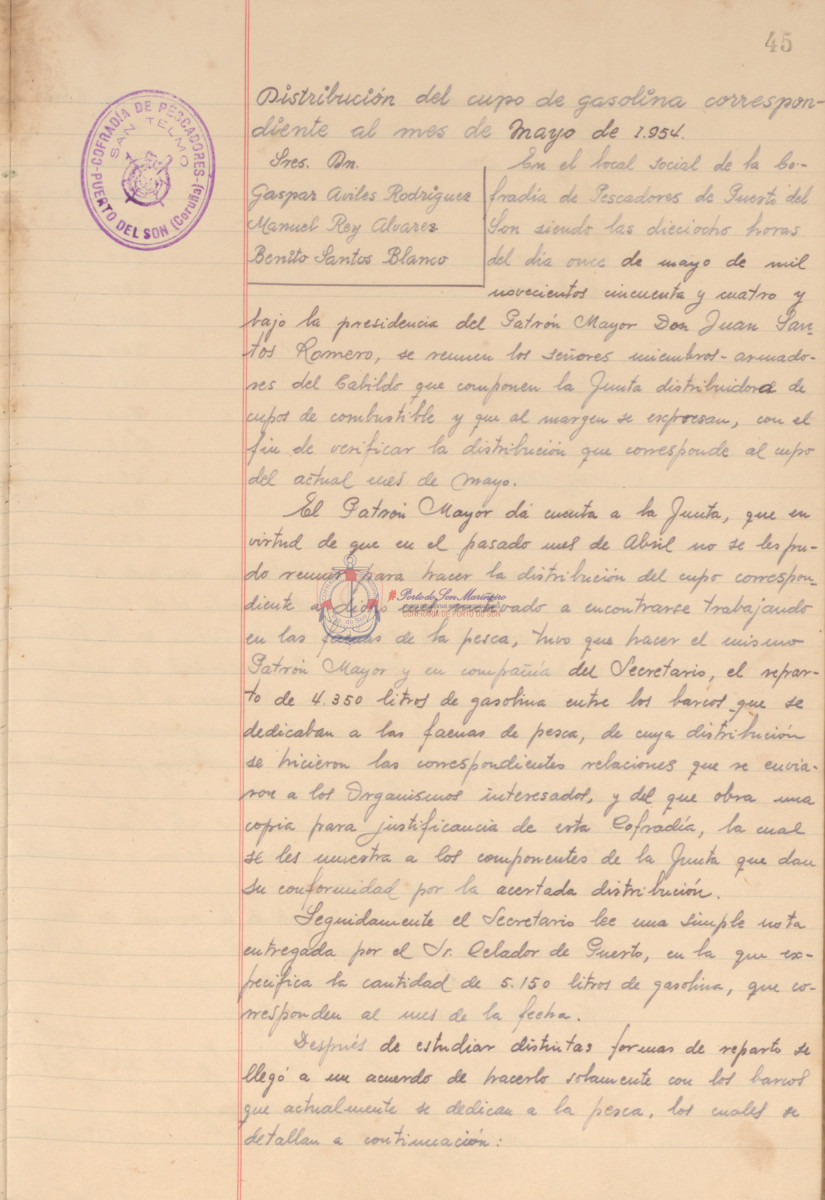 45
COFRADÍA DE PESCADORES
SAN TELMO
PUERTO DEL SON (Coruña)
Distribución del cupo de gasolina correspon-
diente al mes de Mayo de 1.954.
Sres. Dn.
Gaspar Aviles Rodriguez
Manuel Rey Alvarez
Benito Santos Blanco
En el local social de la Co-
fradía de Pescadores de Puerto del
Son siendo las dieciocho horas
del dia once de mayo de mil
novecientos cincuenta y cuatro y
bajo la presidencia del Patrón Mayor Don Juan San-
tos Romero, se reunen los señores miembros-armado-
res del Cabildo que componen la Junta distribuidora de
cupos de combustible y que al margen se expresan, con el
fin de verificar la distribución que corresponde al cupo
del actual mes de Mayo.
El Patrón Mayor dá cuenta a la Junta, que en
virtud de que en el pasado mes de Abril no se les pu-
do reunir para hacer la distribución del cupo correspon-
diente a dicho mes motivado a encontrarse trabajando
en las faenas de la pesca, tuvo que hacer el mismo
Patrón Mayor y en compañía del Secretario, el repar-
to de 4.350 litros de gasolina entre los barcos que se
dedicaban a las faenas de pesca, de cuya distribución
se hicieron las correspondientes relaciones que se envia-
ron a los Organismos interesados, y del que obra una
copia para justificancia de esta Cofradía, la cual
se les muestra a los componentes de la Junta que dan
su conformidad por la acertada distribución.
Seguidamente el Secretario lee una simple nota
entregada por el Sr. Celador de Puerto, en la que ex-
pecifica la cantidad de 5.150 litros de gasolina, que co-
rresponden al mes de la fecha.
Después de estudiar distintas formas de reparto se
llegó a un acuerdo de hacerlo solamente con los barcos
que actualmente se dedican a la pesca, los cuales se
detallan a continuación:
Porto do Son Mariñeiro
CONFRARÍA DE PORTO DO SON